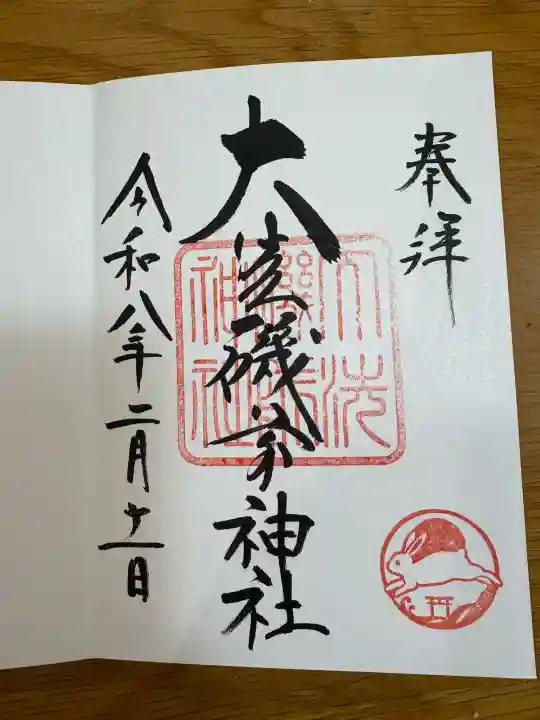 奉拝
大洗磯前神社
大洗磯前神社
令和八年二月十一日